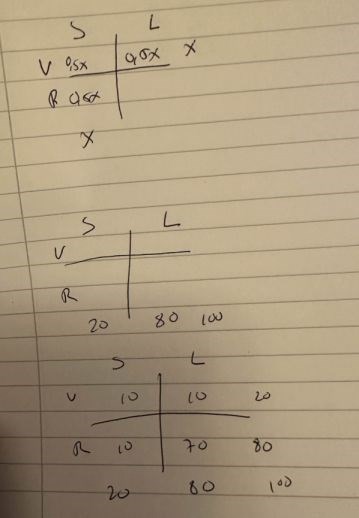 S L
V 0,5x 0,5x X
R 0,5x
X
S L
V
R
20 80 100
S L
V 10 10 20
R 10 70 80
20 80 100